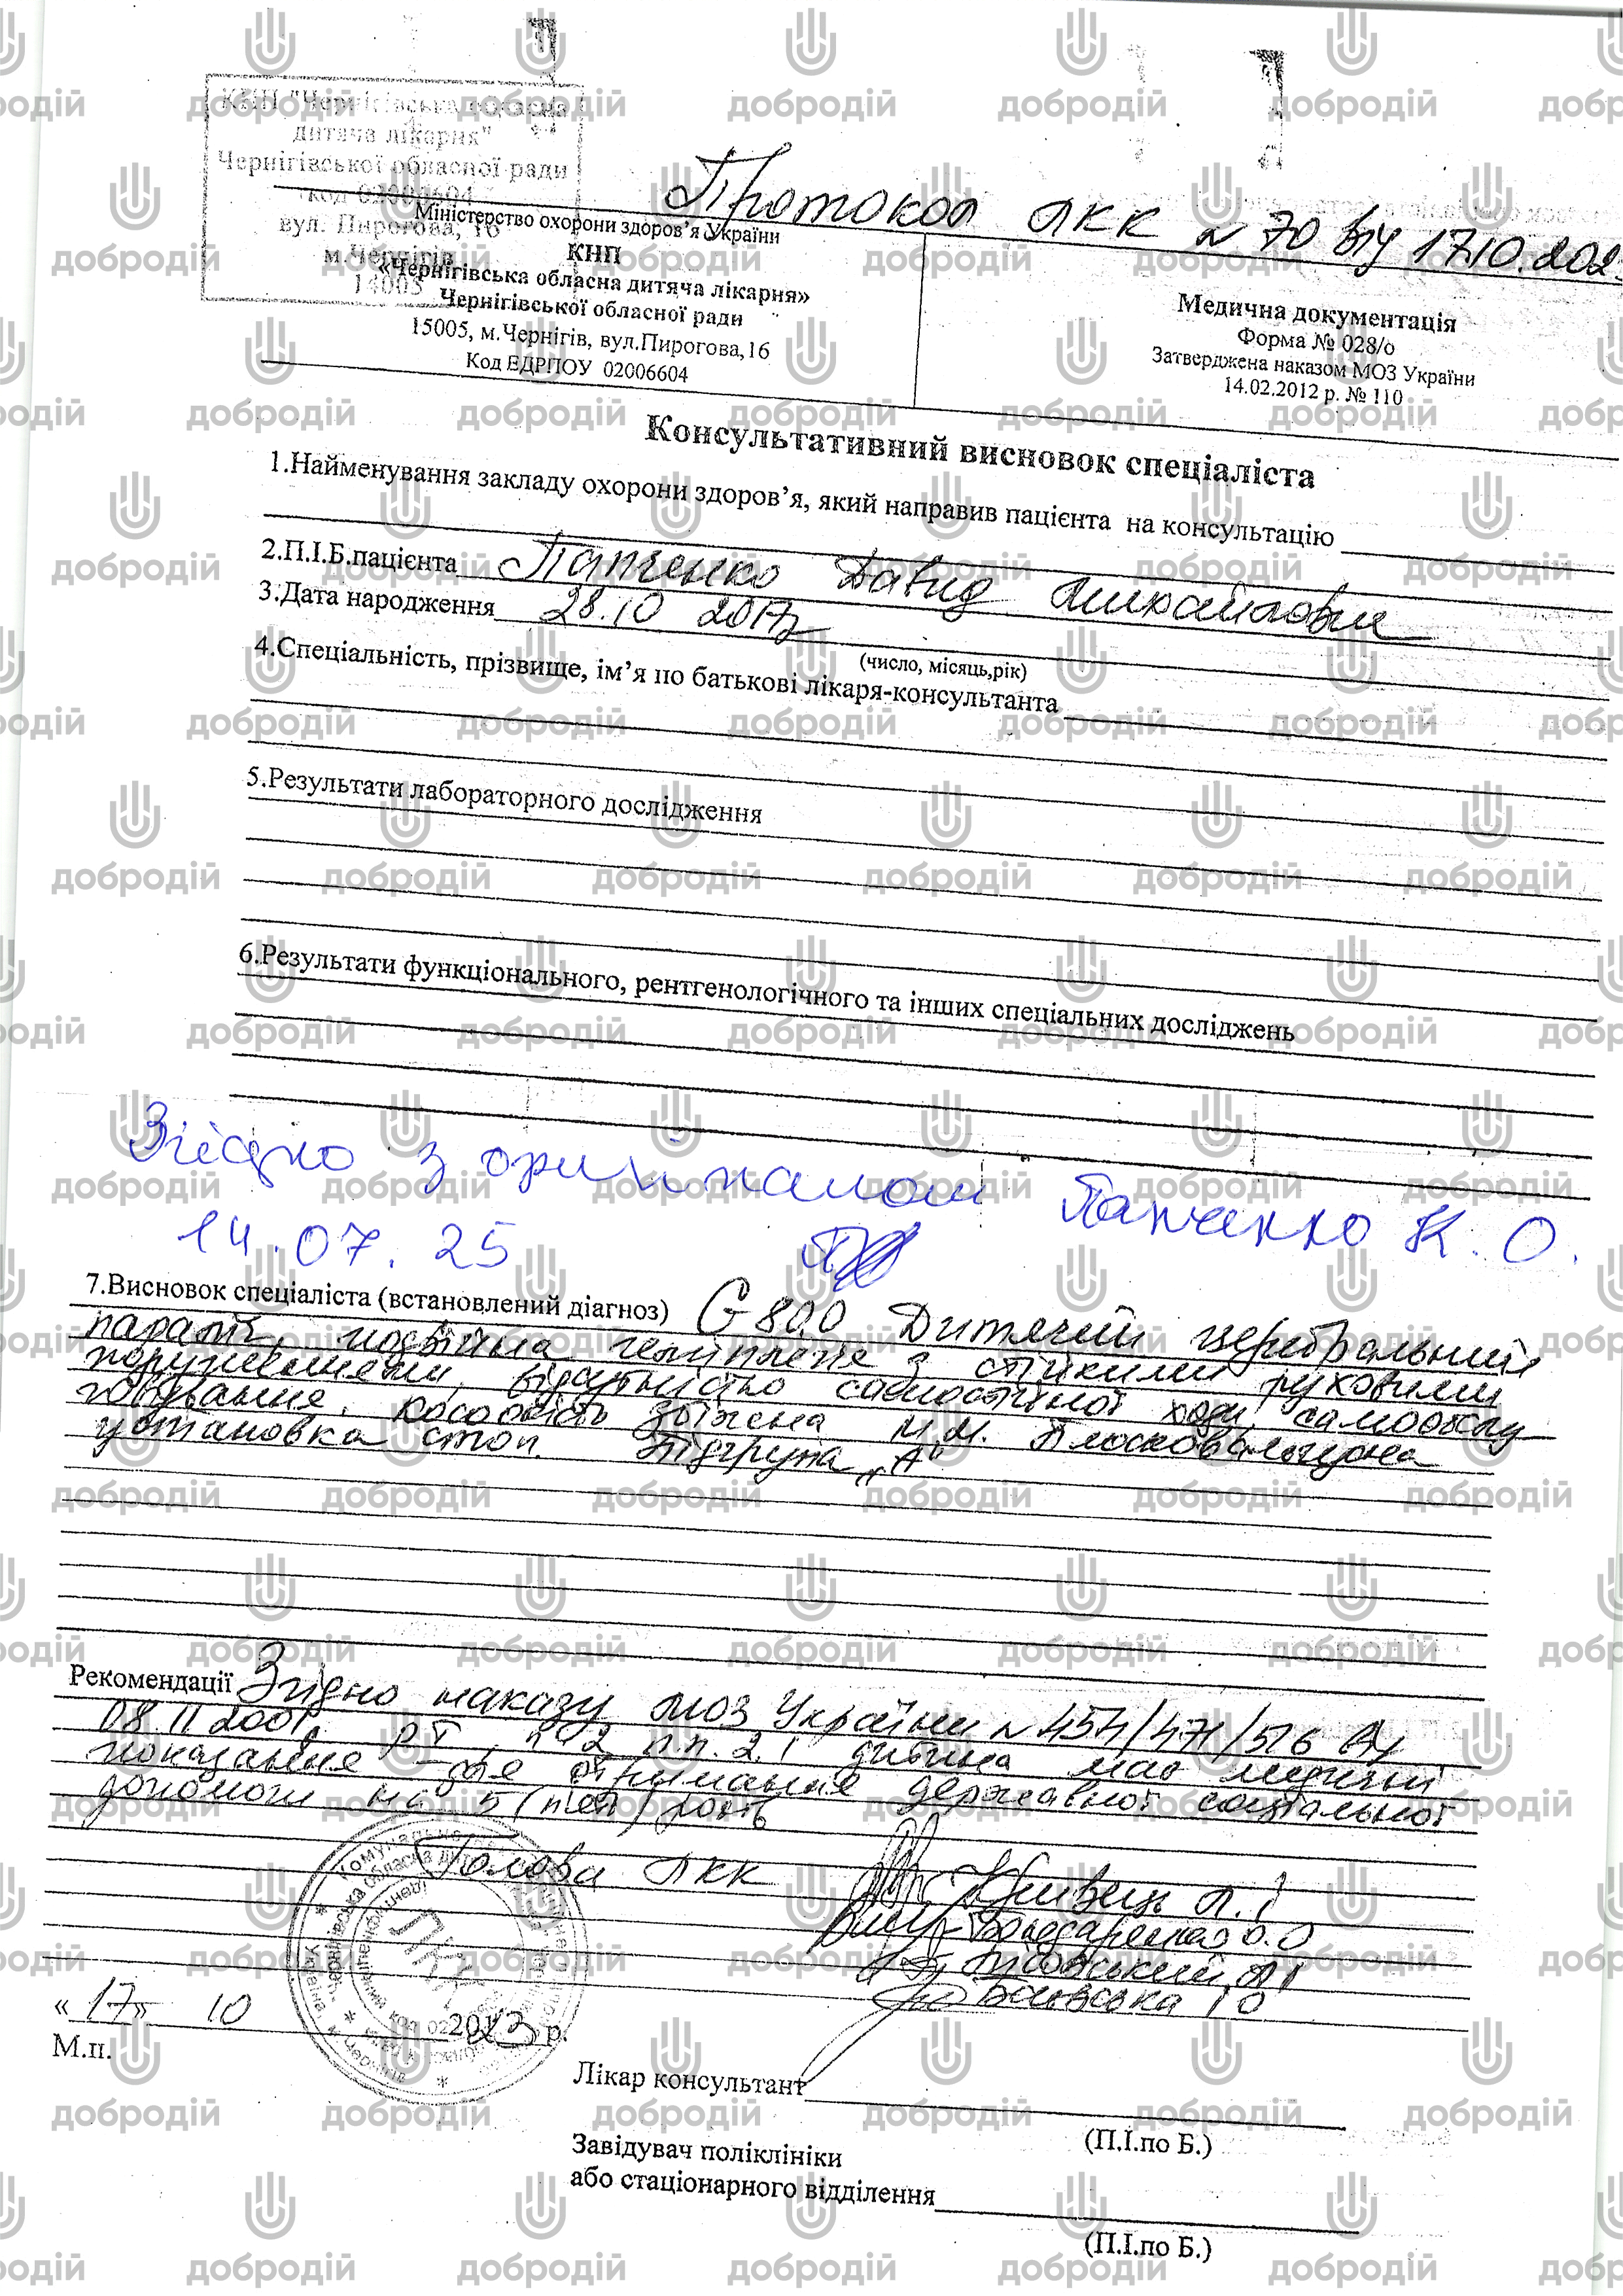 КНП "Чернігівська обласна
дитяча лікарня"
Чернігівської обласної ради
код 02006604
вул. Пирогова, 16
м.Чернігів
14005
Протокол ЛКК № 70 від 17.10.202
Міністерство охорони здоров’я України
КНП
«Чернігівська обласна дитяча лікарня»
Чернігівської обласної ради
15005, м.Чернігів, вул.Пирогова,16
Код ЕДРПОУ 02006604
Медична документація
Форма № 028/о
Затверджена наказом МОЗ України
14.02.2012 р. № 110
Консультативний висновок спеціаліста
1.Найменування закладу охорони здоров’я, який направив пацієнта на консультацію
2.П.І.Б.пацієнта Папченко Давид Михайлович
3.Дата народження 28.10 2017р
(число, місяць,рік)
4.Спеціальність, прізвище, ім’я по батькові лікаря-консультанта
5.Результати лабораторного дослідження
6.Результати функціонального, рентгенологічного та інших спеціальних досліджень
Згідно з оригіналом Папченко К. О.
14.07.25
7.Висновок спеціаліста (встановлений діагноз) G 80.0 Дитячий церебральний
параліч, подвійна геміплегія з стійкими руховими
порушеннями, відсутністю самостійної ходи, самообслу-
говування. Косоокість збіжна М.М. Плосковальгусна
установка стоп. Підгрупа „А"
Рекомендації Згідно наказу МОЗ України № 454/471/516 від
08.11 2001, р I, п 2 п.п. 2.1 дитина має медичні
показання для отримання державної соціальної
допомоги на 5 (п'ять) років
Голова ЛКК
Бондаренко О.О
ЛКК
«17» 10 2023 р.
М.п.
Лікар консультант
(П.І.по Б.)
Завідувач поліклініки
або стаціонарного відділення
(П.І.по Б.)
добродій